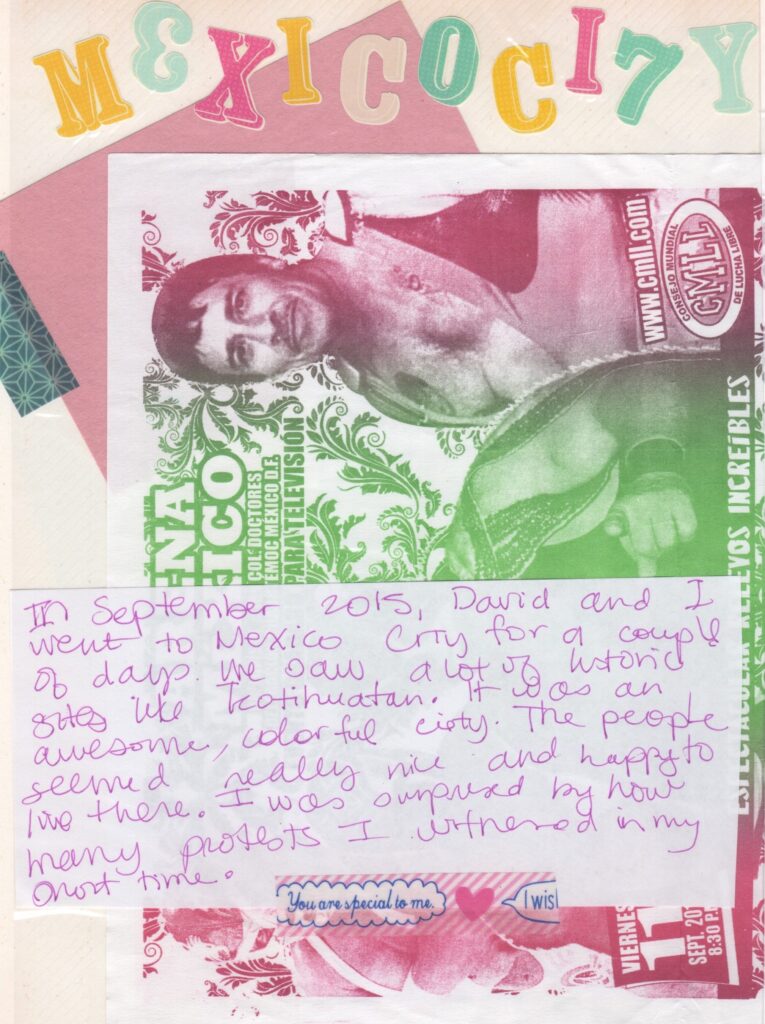 MEXICO CITY
www.cmll.com
CONSEJO MUNDIAL
CMLL
DE LUCHA LIBRE
ENA
XICO
COL. DOCTORES
EMOC MÉXICO D.F.
PARA TELEVISIÓN
ESPECTACULAR RELEVOS INCREÍBLES
In September 2015, David and I
went to Mexico City for a couple
of days. We saw a lot of historic
sites like Teotihuatan. It was an
awesome, colorful city. The people
seemed really nice and happy to
live there. I was surprised by how
many protests I witnessed in my
short time.
You are special to me.
I wis
VIERNES
11
SEPT. 201
8:30 P.